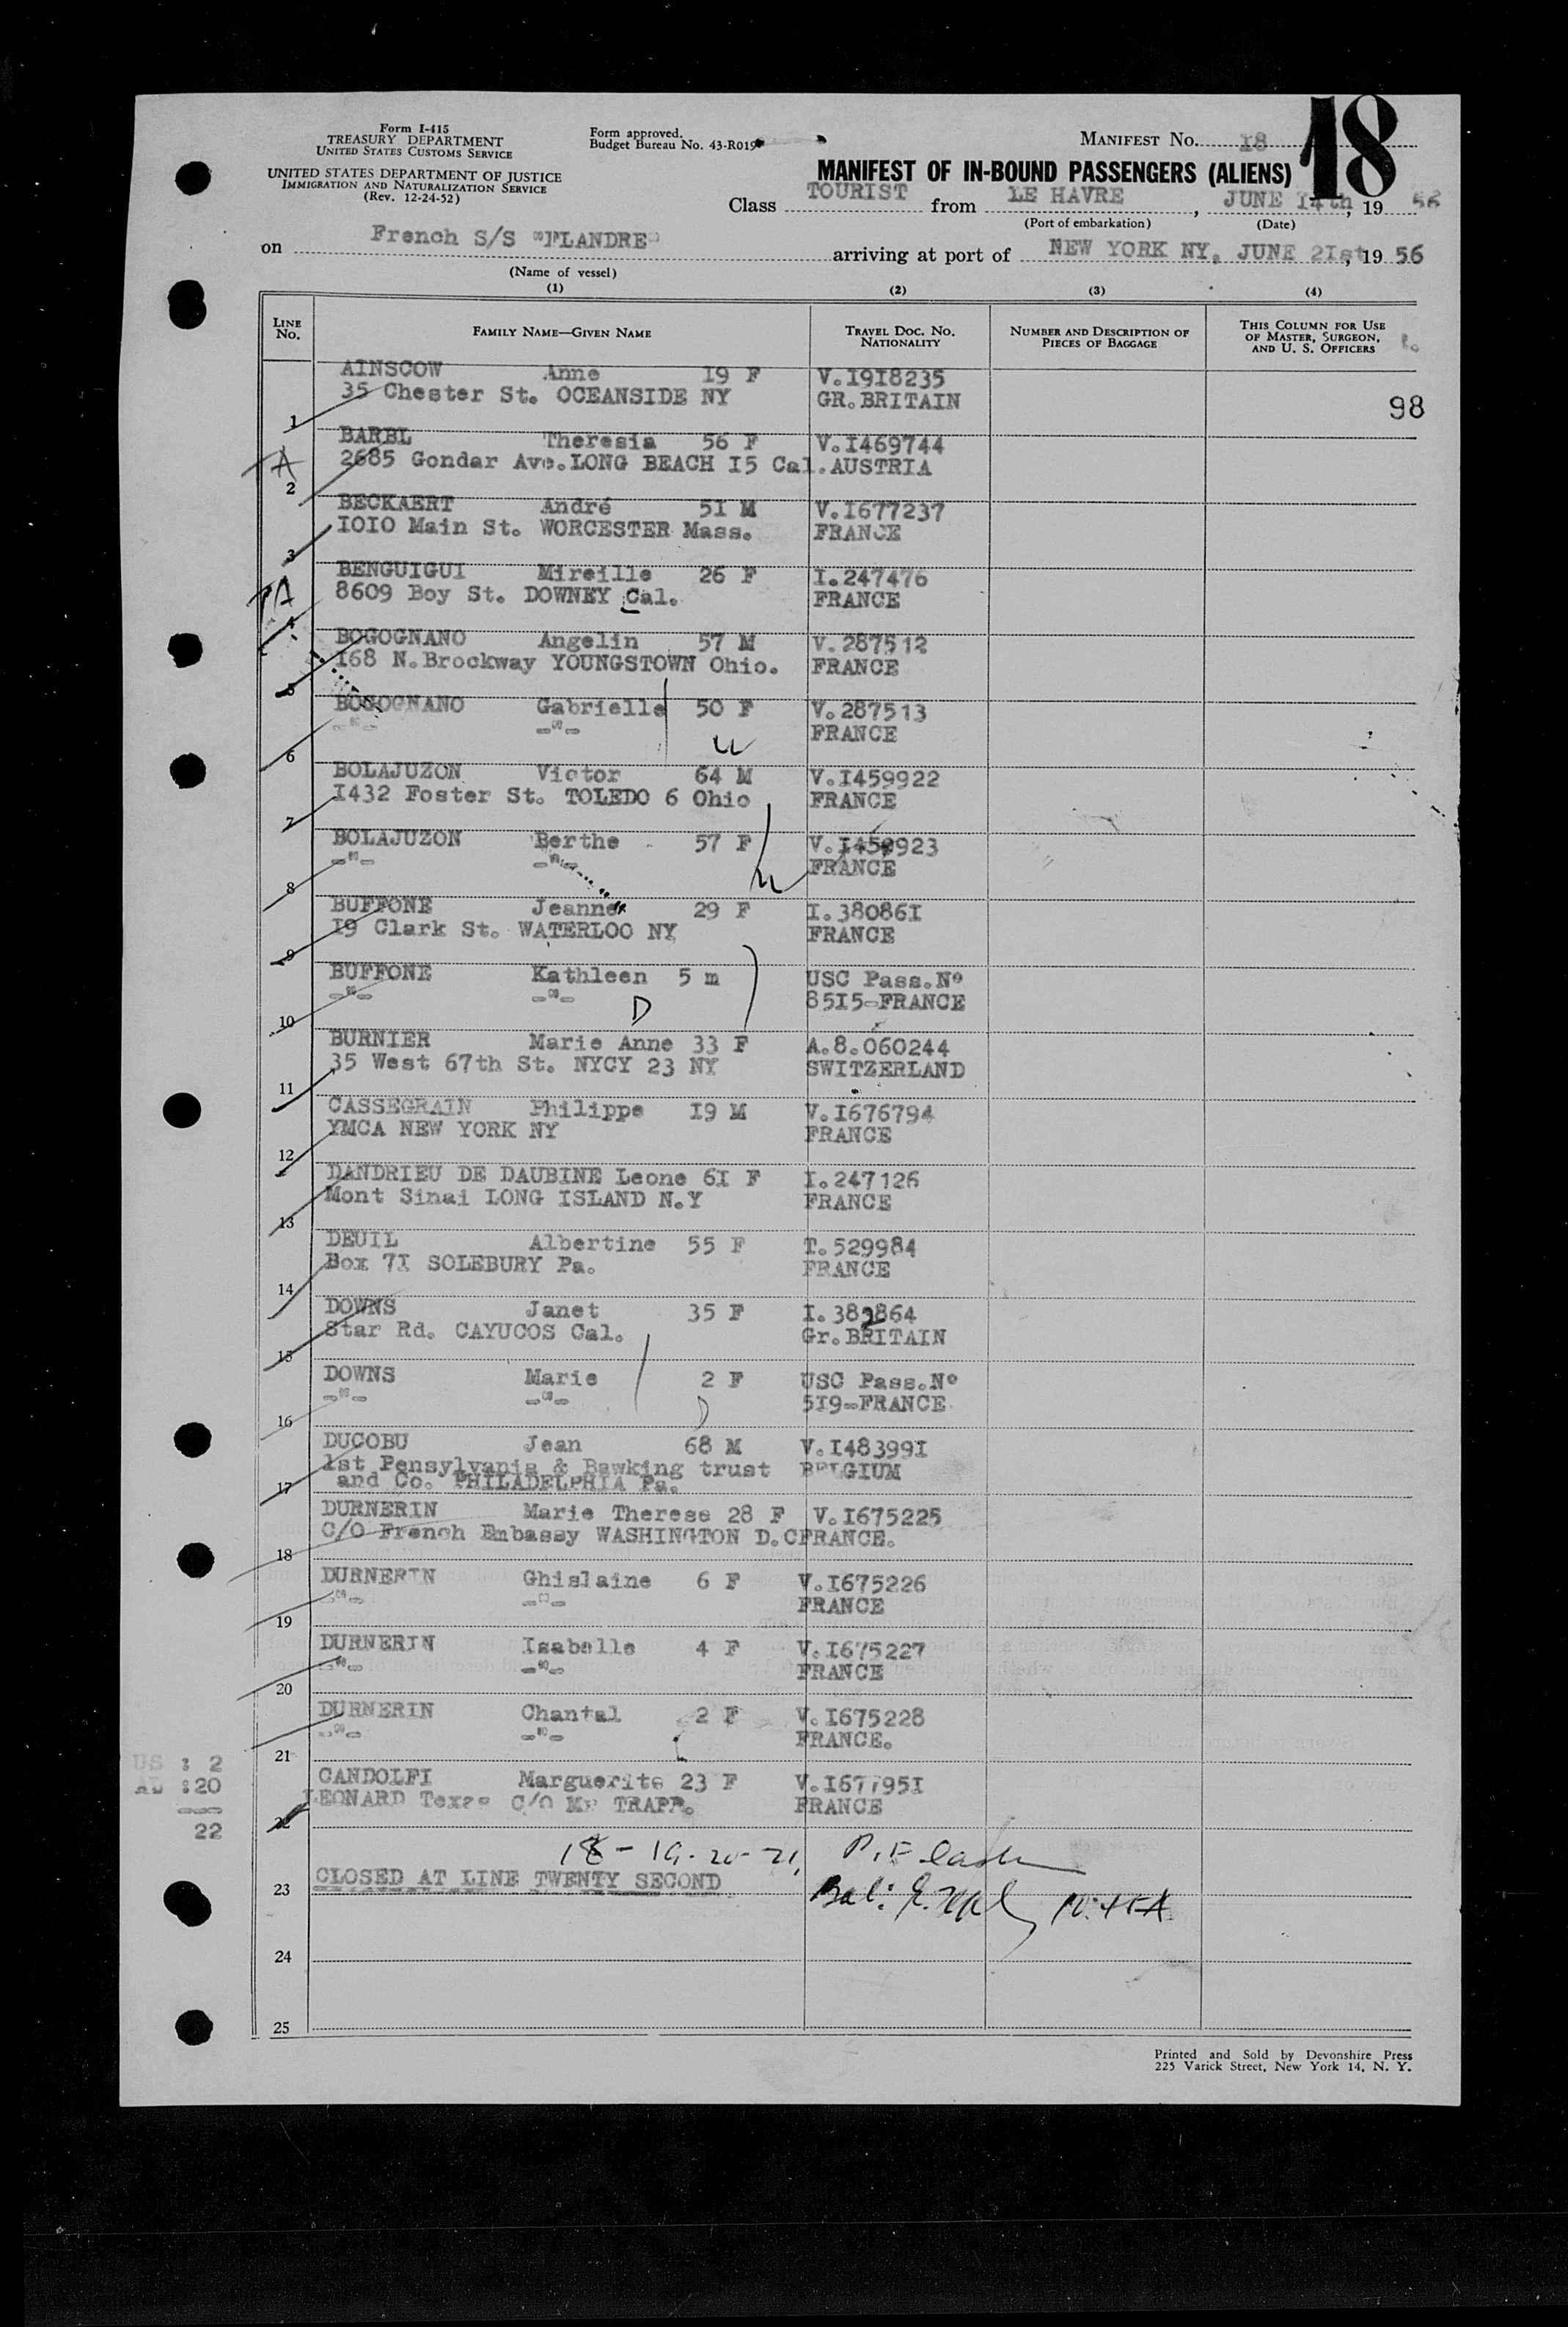 Form I-415
TREASURY DEPARTMENT
UNITED STATES CUSTOMS SERVICE
UNITED STATES DEPARTMENT OF JUSTICE
IMMIGRATION AND NATURALIZATION SERVICE
(Rev. 12-24-52)
Form approved.
Budget Bureau No. 43-R019
MANIFEST NO. 18
18
MANIFEST OF IN-BOUND PASSENGERS (ALIENS)
Class TOURIST from LE HAVRE, JUNE I4th, 19 56
(Port of embarkation) (Date)
on French S/S "FLANDRE" arriving at port of NEW YORK NY, JUNE 2Ist, 19 56
(Name of vessel)
(1) (2) (3) (4)
LINE No. FAMILY NAME—GIVEN NAME TRAVEL DOC. NO. NATIONALITY NUMBER AND DESCRIPTION OF PIECES OF BAGGAGE THIS COLUMN FOR USE OF MASTER, SURGEON, AND U. S. OFFICERS
98
AINSCOW Anne I9 F V.I9I8235
1 35 Chester St. OCEANSIDE NY GR.BRITAIN
BARBL Theresia 56 F V.I469744
2 2685 Gondar Ave.LONG BEACH I5 Cal. AUSTRIA
BECKAERT André 5I M V.I677237
3 IOIO Main St. WORCESTER Mass. FRANCE
BENGUIGUI Mireille 26 F I.247476
4 8609 Boy St. DOWNEY Cal. FRANCE
BOGOGNANO Angelin 57 M V.2875I2
5 I68 N.Brockway YOUNGSTOWN Ohio. FRANCE
BOGOGNANO Gabrielle 50 F V.2875I3
6 -"- -"- FRANCE
BOLAJUZON Victor 64 M V.I459922
7 I432 Foster St. TOLEDO 6 Ohio FRANCE
BOLAJUZON Berthe 57 F V.I459923
8 -"- -"- FRANCE
BUFFONE Jeanne 29 F I.38086I
9 I9 Clark St. WATERLOO NY FRANCE
BUFFONE Kathleen 5 m USC Pass.Nº
10 -"- -"- D 85I5-FRANCE
BURNIER Marie Anne 33 F A.8.060244
11 35 West 67th St. NYCY 23 NY SWITZERLAND
CASSEGRAIN Philippe I9 M V.I676794
12 YMCA NEW YORK NY FRANCE
DANDRIEU DE DAUBINE Leone 6I F I.247I26
13 Mont Sinai LONG ISLAND N.Y FRANCE
DEUIL Albertine 55 F T.529984
14 Box 7I SOLEBURY Pa. FRANCE
DOWNS Janet 35 F I.382864
15 Star Rd. CAYUCOS Cal. Gr.BRITAIN
DOWNS Marie 2 F USC Pass.Nº
16 -"- -"- D 5I9-FRANCE
DUCOBU Jean 68 M V.I48399I
17 1st Pensylvania & Bawking trust BELGIUM
and Co. PHILADELPHIA Pa.
DURNERIN Marie Therese 28 F V.I675225
18 C/O French Embassy WASHINGTON D.C FRANCE.
DURNERIN Ghislaine 6 F V.I675226
19 -"- -"- FRANCE
DURNERIN Isabelle 4 F V.I675227
20 -"- -"- FRANCE
DURNERIN Chantal 2 F V.I675228
21 -"- -"- FRANCE.
US : 2
AL :20
22
GANDOLFI Marguerite 23 F V.I67795I
22 LEONARD Texas C/O Mr TRAPP. FRANCE
18 - 19 - 20 - 21,
23 CLOSED AT LINE TWENTY SECOND
Bal:
24
25
Printed and Sold by Devonshire Press
225 Varick Street, New York 14, N. Y.